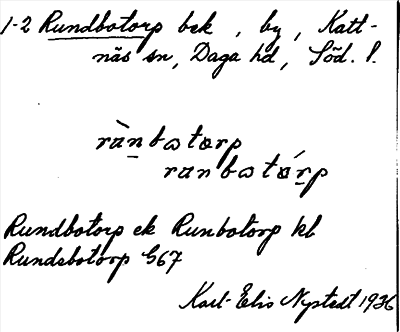 1-2 Rundbotorp bek, by, Katt-
näs sn, Daga hd, Söd. l.
rànbωtorp
ranbωtórp
Rundbotorp ek Runbotorp kb
Rundsbotorp G67
Karl-Elis Nystedt 1936